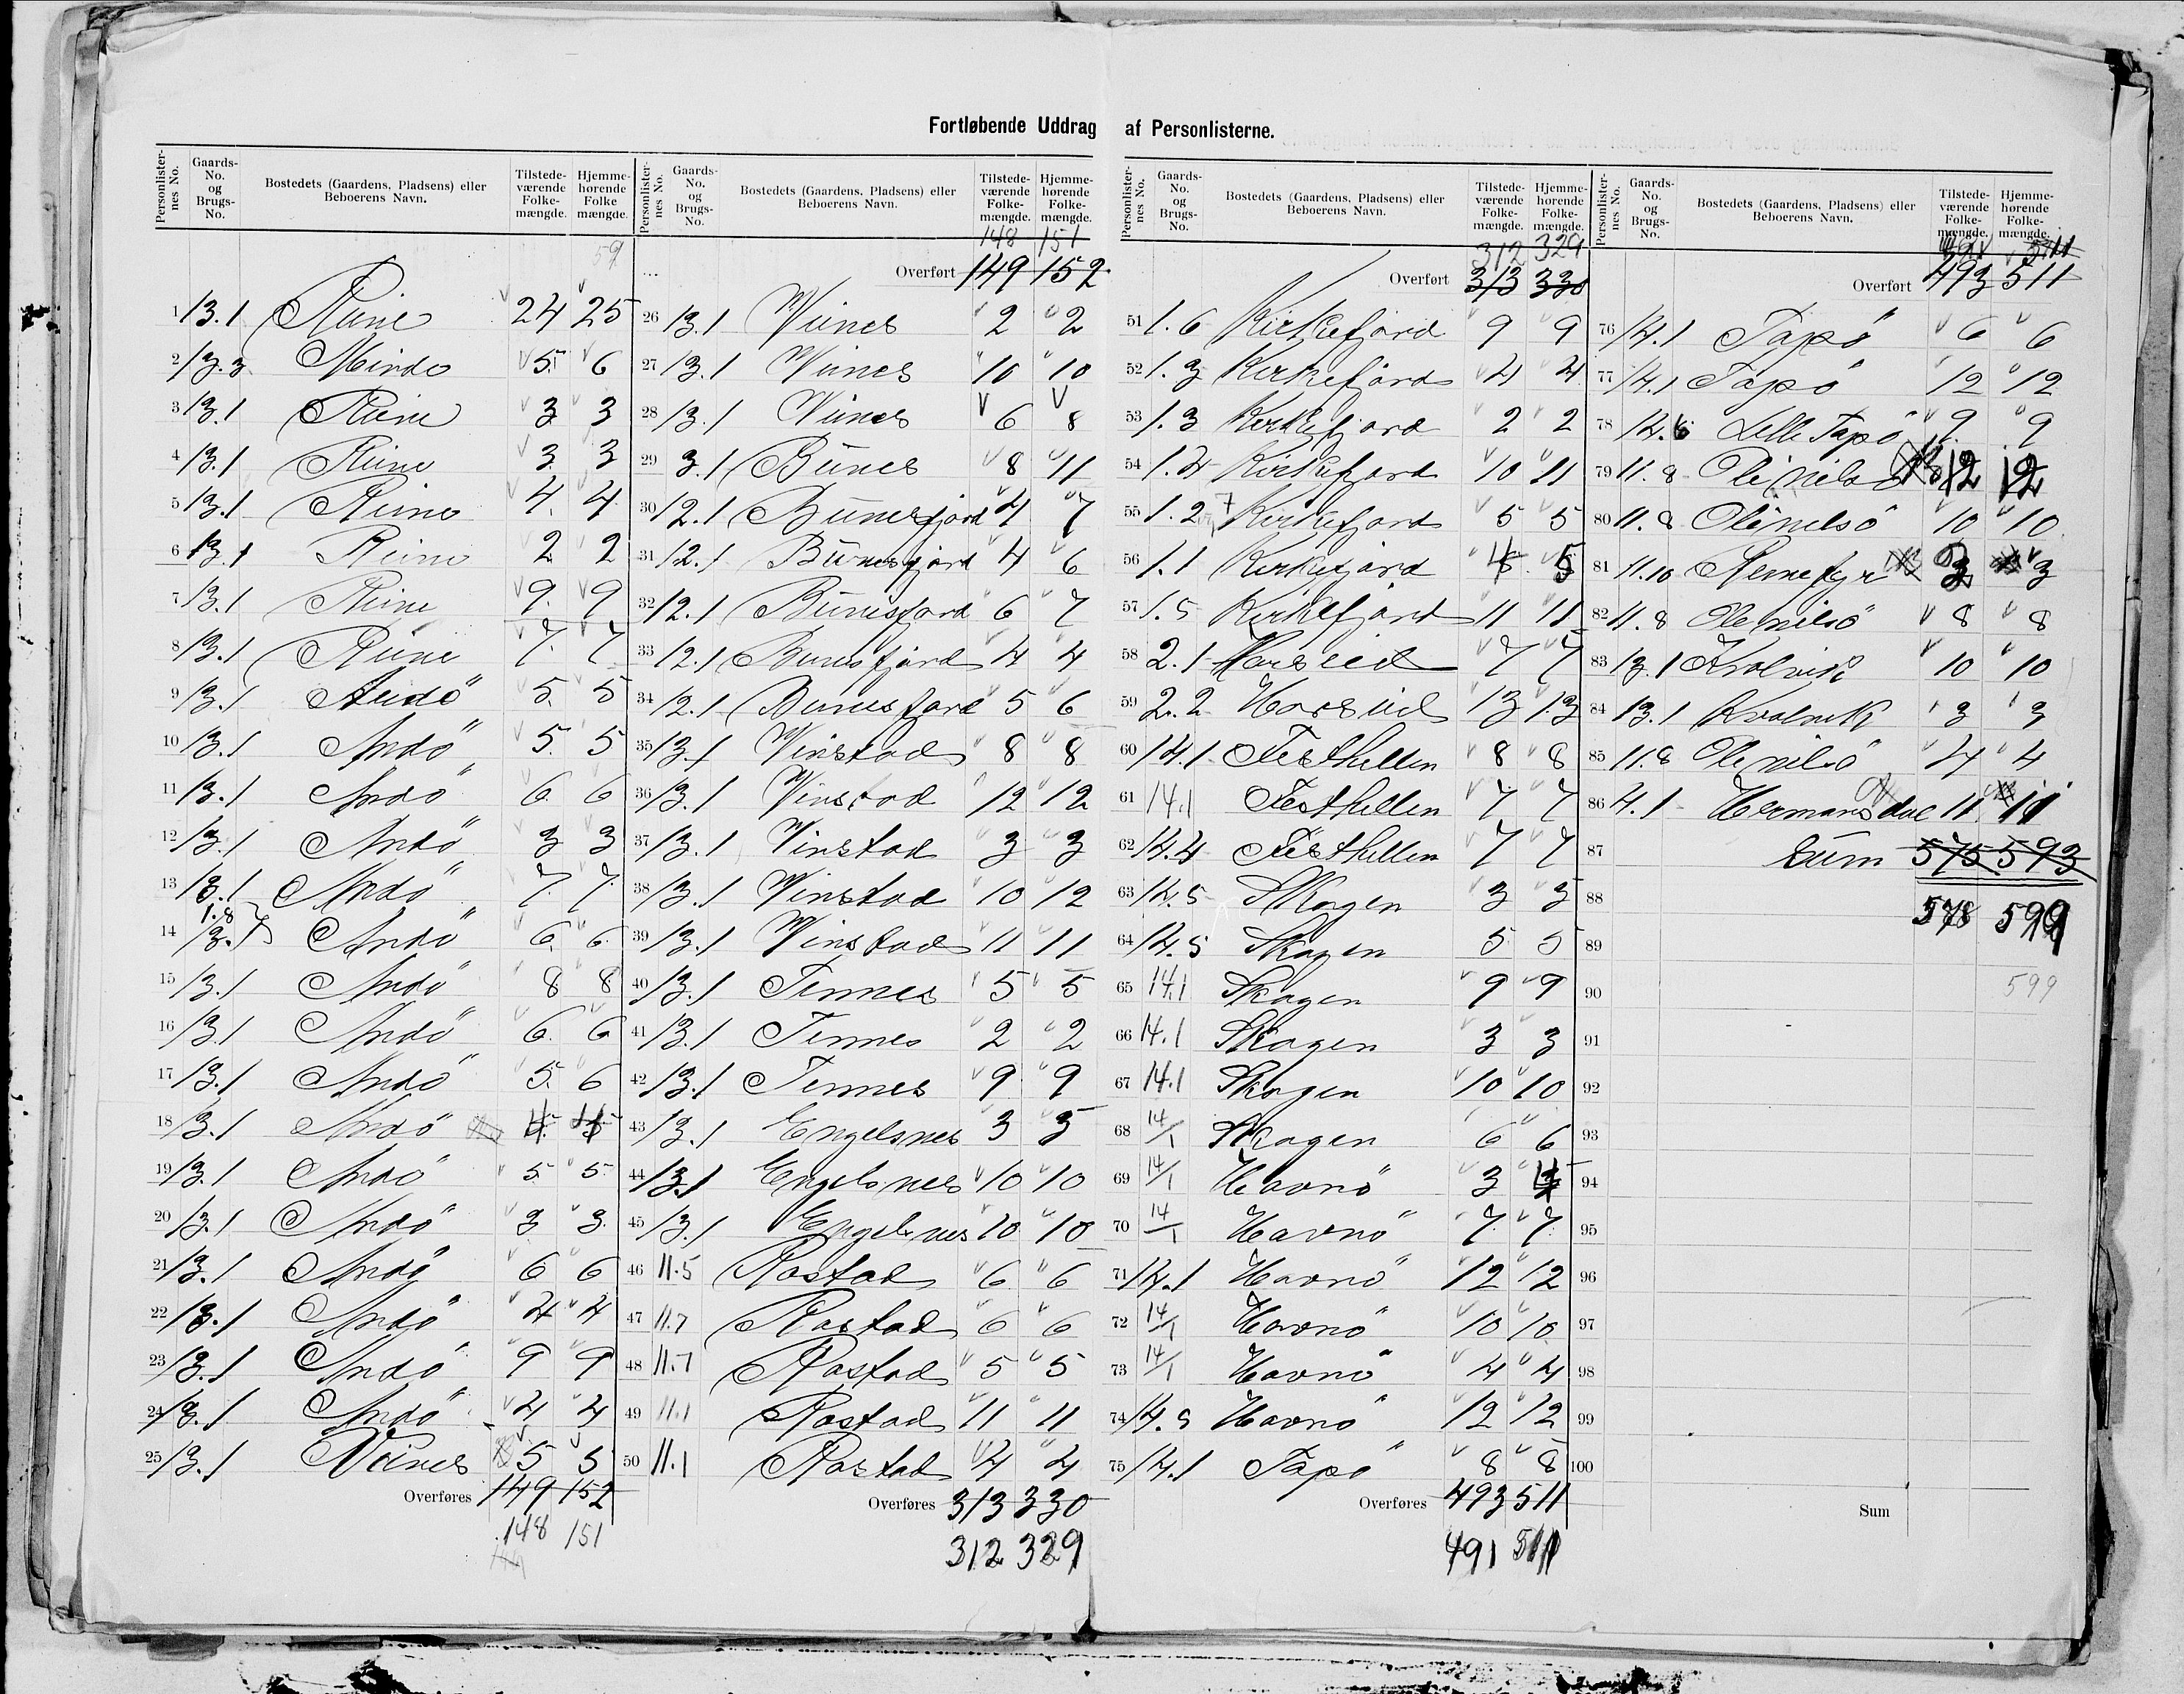 Fortløbende Uddrag af Personlisterne.
Personlister-nes No. Gaards-No. og Brugs-No. Bostedets (Gaardens, Pladsens) eller Beboerens Navn. Tilstede-værende Folke-mængde. Hjemme-hørende Folke mængde.
59
1 13.1 Reine 24 25
2 13.3 Mindo 5 6
3 13.1 Reine 3 3
4 13.1 Reine 3 3
5 13.1 Reine 4 4
6 13.1 Reine 2 2
7 13.1 Reine 9 9
8 13.1 Reine 7 7
9 13.1 Andö 5 5
10 13.1 Andö 5 5
11 13.1 Andö 6 6
12 13.1 Andö 3 3
13 13.1 Andö 7 7
1.8
14 13.1 Andö 6 6
15 13.1 Andö 8 8
16 13.1 Andö 6 6
17 13.1 Andö 5 6
18 13.1 Andö
19 13.1 Andö 5 5
20 13.1 Andö 3 3
21 13.1 Andö 6 6
22 13.1 Andö 4 4
23 13.1 Andö 9 9
24 13.1 Andö 4 4
25 13.1 Veines 5 5
Overføres 149 152
148 151
Personlister-nes No. Gaards-No. og Brugs-No. Bostedets (Gaardens, Pladsens) eller Beboerens Navn. Tilstede-værende Folke-mængde. Hjemme-hørende Folke-mængde.
148 151
Overført 149 152
26 13.1 Viines 2 2
27 13.1 Viines 10 10
28 13.1 Viines 6 8
29 3.1 Bunes 8 11
30 12.1 Bunesfjord 4 7
31 12.1 Bunesfjord 4 6
32 12.1 Bunesfjord 6 7
33 12.1 Bunesfjord 4 4
34 12.1 Bunesfjord 5 6
35 13.1 Vinstad 8 8
36 13.1 Vinstad 12 12
37 13.1 Vinstad 3 3
38 13.1 Vinstad 10 12
39 13.1 Vinstad 11 11
40 13.1 Tennes 5 5
41 13.1 Tennes 2 2
42 13.1 Tennes 9 9
43 13.1 Engelsnes 3 3
44 13.1 Engelsnes 10 10
45 13.1 Engelsnes 10 10
46 11.5 Rostad 6 6
47 11.7 Rostad 6 6
48 11.7 Rostad 5 5
49 11.1 Rostad 11 11
50 11.1 Rostad 4 4
Overføres 313 330
312 329
Personlister-nes No. Gaards-No. og Brugs-No. Bostedets (Gaardens, Pladsens) eller Beboerens Navn. Tilstede-værende Folke-mængde. Hjemme-hørende Folke-mængde.
312 329
Overført 313 330
51 1.6 Kirkefjord 9 9
52 1.3 Kirkefjord 4 4
53 1.3 Kirkefjord 2 2
54 1.4 Kirkefjord 10 11
55 1.2 7 Kirkefjord 5 5
56 1.1 Kirkefjord 5
57 1.5 Kirkefjord 11 11
58 2.1 Horseid 7 7
59 2.2 Horseid 13 13
60 14.1 Festhellen 8 8
61 14.1 Festhellen 7 7
62 14.4 Festhellen 7 7
63 14.5 Skagen 3 3
64 14.5 Skagen 5 5
65 14.1 Skagen 9 9
66 14.1 Skagen 3 3
67 14.1 Skagen 10 10
68 14/1 Skagen 6 6
69 14/1 Havnö 3 4
70 14/1 Havnö 7 7
71 14.1 Havnö 12 12
72 14/1 Havnö 10 10
73 14/1 Havnö 4 4
74 14.5 Havnö 12 12
75 14.1 Tapö 8 8
Overføres 493 511
491 511
Personlister-nes No. Gaards-No. og Brugs-No. Bostedets (Gaardens, Pladsens) eller Beboerens Navn. Tilstede-værende Folke-mængde. Hjemme-hørende Folke-mængde.
491 511
Overført 493 511
76 14.1 Tapö 6 6
77 14.1 Tapö 12 12
78 14.6 Lille Tapö 9 9
79 11.8 Olenilsö 12 12
80 11.8 Olenilsö 10 10
81 11.10 Reinefyr 3 3
82 11.8 Olenilsö 8 8
83 13.1 Kvalvik 10 10
84 13.1 Kvalvik 3 3
85 11.8 Olenilsö 4 4
86 4.1 Hermansdal 11 11
87 Sum 575 593
88 578 599
89
90 599
91
92
93
94
95
96
97
98
99
100
Sum